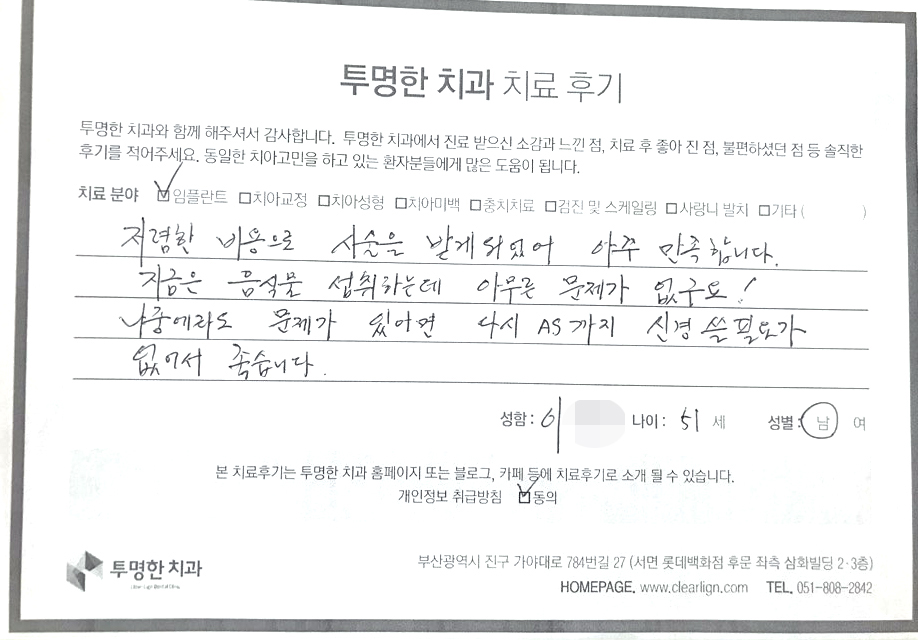 투명한 치과 치료 후기
투명한 치과와 함께 해주셔서 감사합니다. 투명한 치과에서 진료 받으신 소감과 느낀 점, 치료 후 좋아 진 점, 불편하셨던 점 등 솔직한
후기를 적어주세요. 동일한 치아고민을 하고 있는 환자분들에게 많은 도움이 됩니다.
치료 분야 ☑임플란트 □치아교정 □치아성형 □치아미백 □충치치료 □검진 및 스케일링 □사랑니 발치 □기타 ( )
저렴한 비용으로 시술을 받게 되었어 아주 만족합니다.
지금은 음식물 섭취하는데 아무른 문제가 없구요!
나중에라도 문제가 있아면 다시 AS까지 신경 쓸 필요가
없어서 좋습니다.
성함 : 이 나이 : 51 세 성별 : 남 여
본 치료후기는 투명한 치과 홈페이지 또는 블로그, 카페 등에 치료후기로 소개 될 수 있습니다.
개인정보 취급방침 ☑동의
투명한 치과
부산광역시 진구 가야대로 784번길 27 (서면 롯데백화점 후문 좌측 삼화빌딩 2·3층)
HOMEPAGE. www.clearlign.com TEL. 051-808-2842